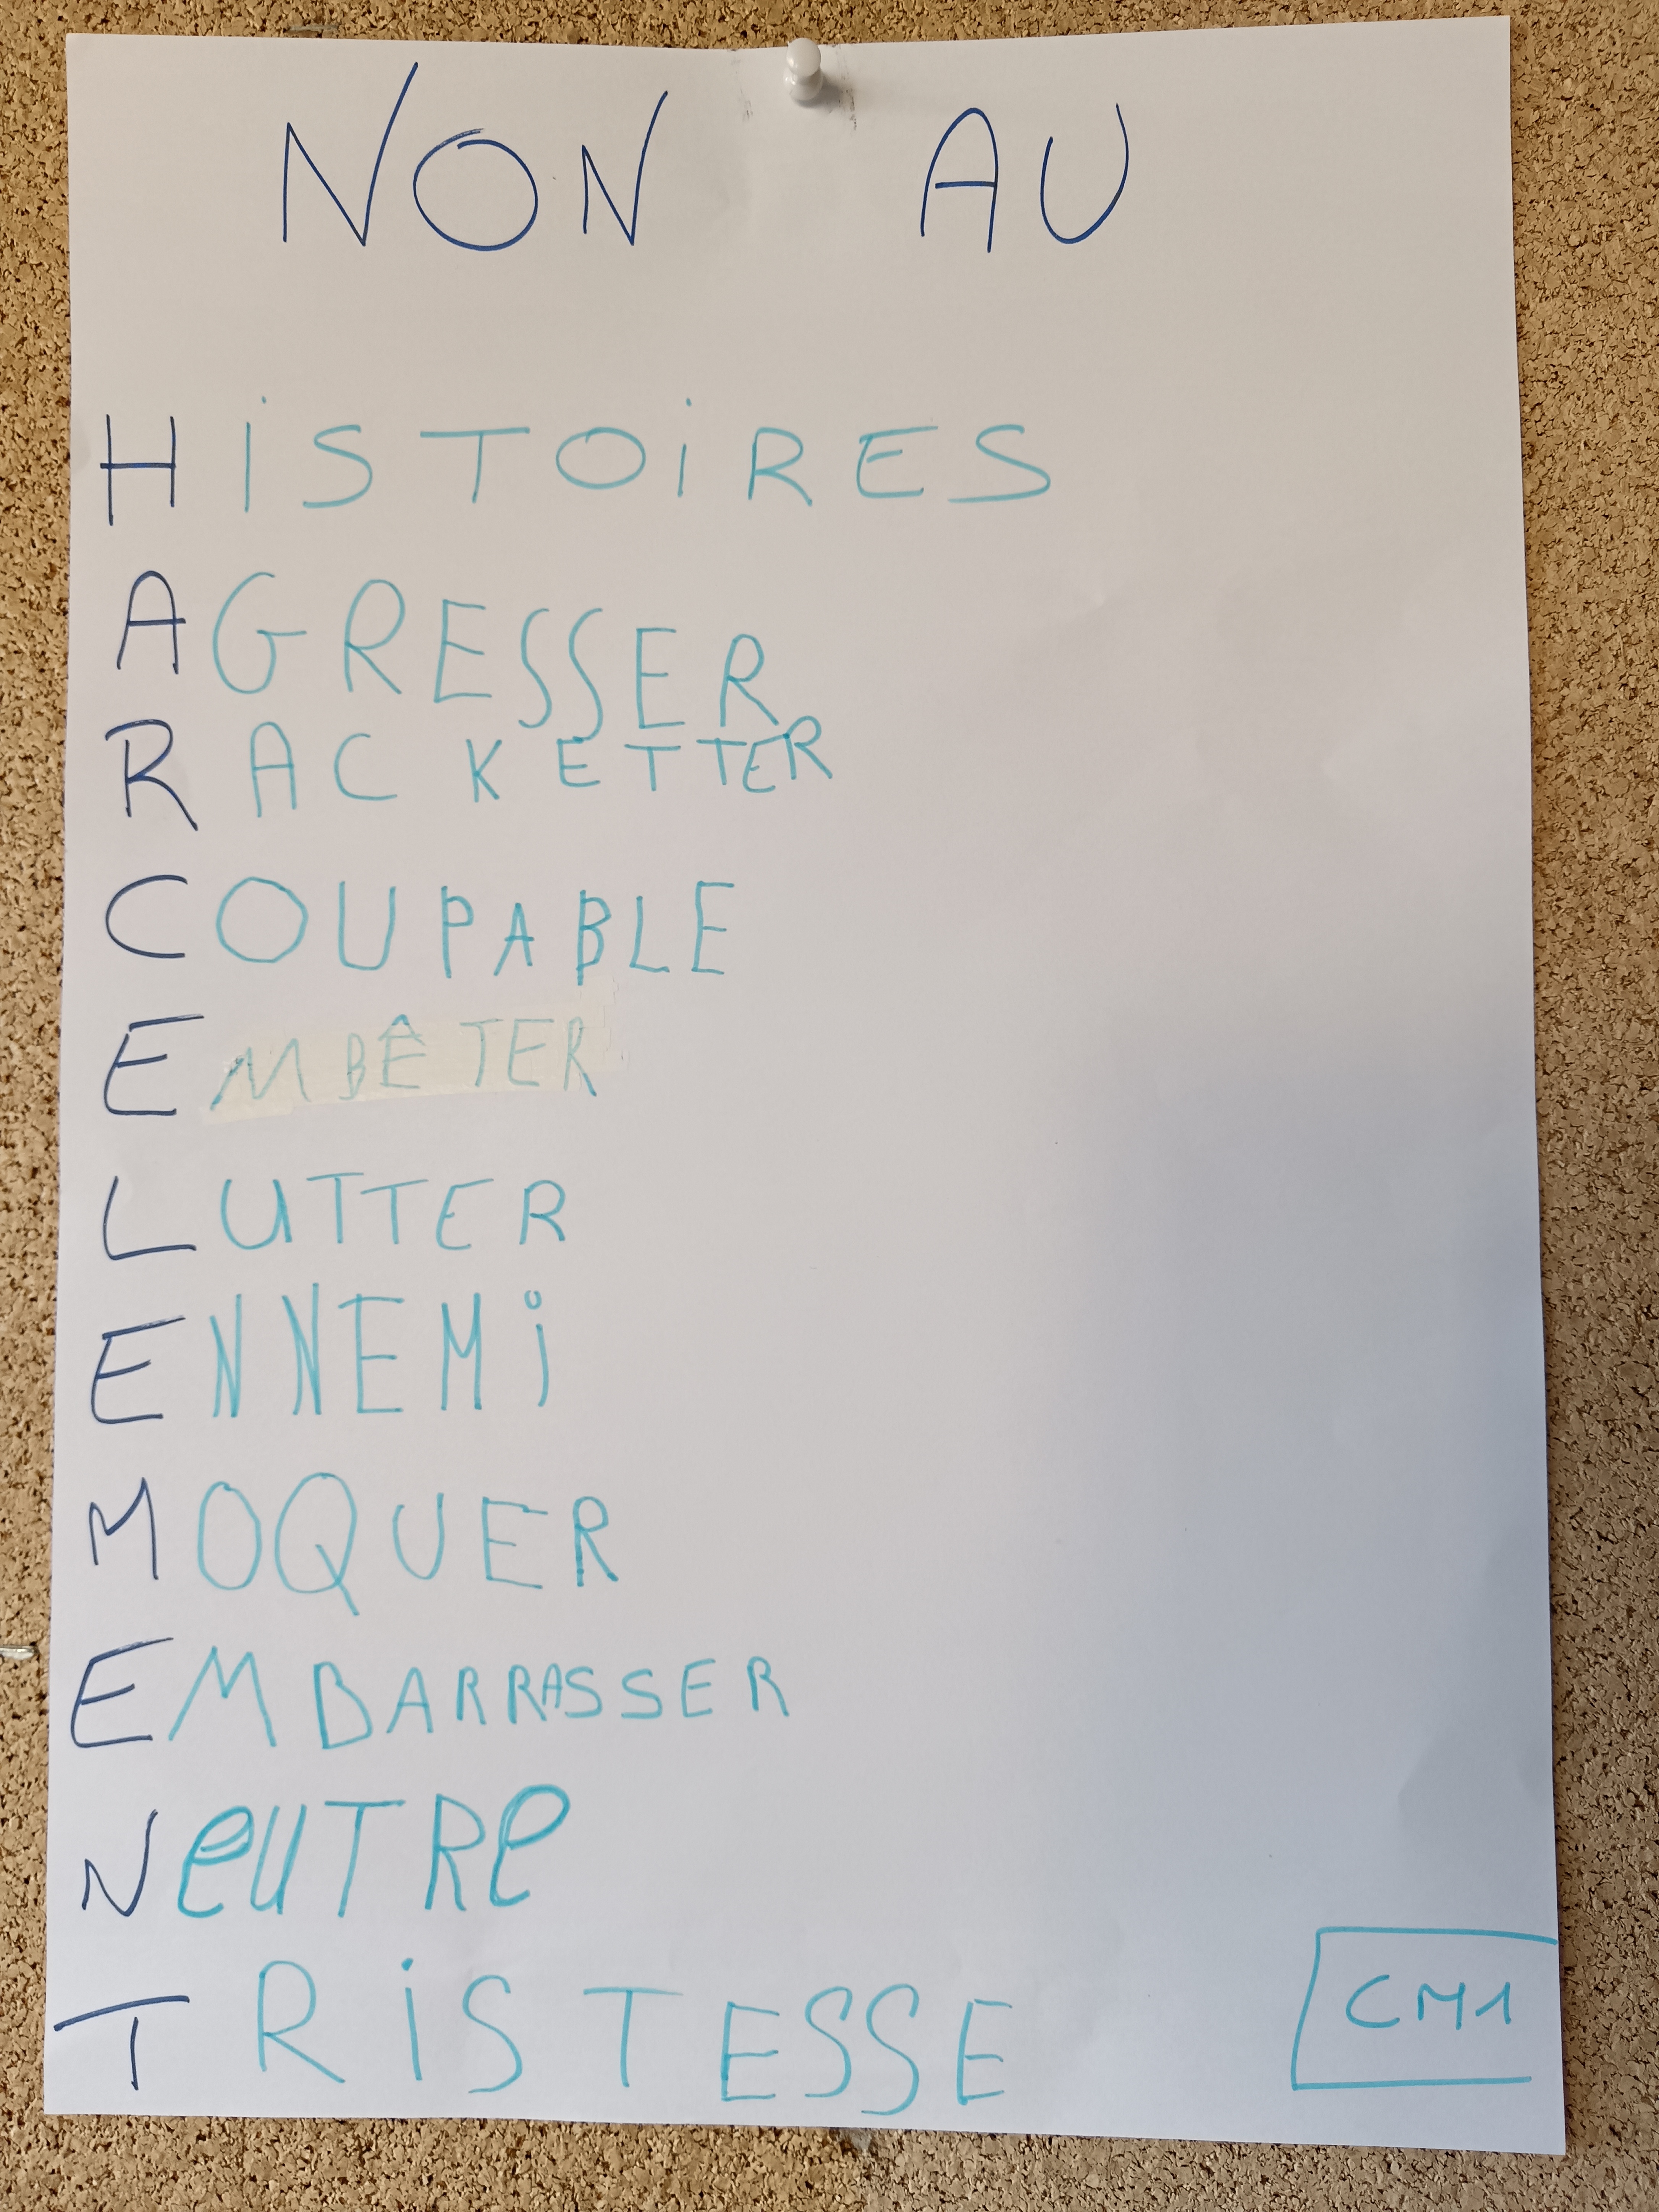 NON AU
HiSTOiRES
AGRESSER
RACKETTER
COUPABLE
EMBÊTER
LUTTER
ENNEMi
MOQUER
EMBARRASSER
NeUTRe
TRiSTESSE
CM1